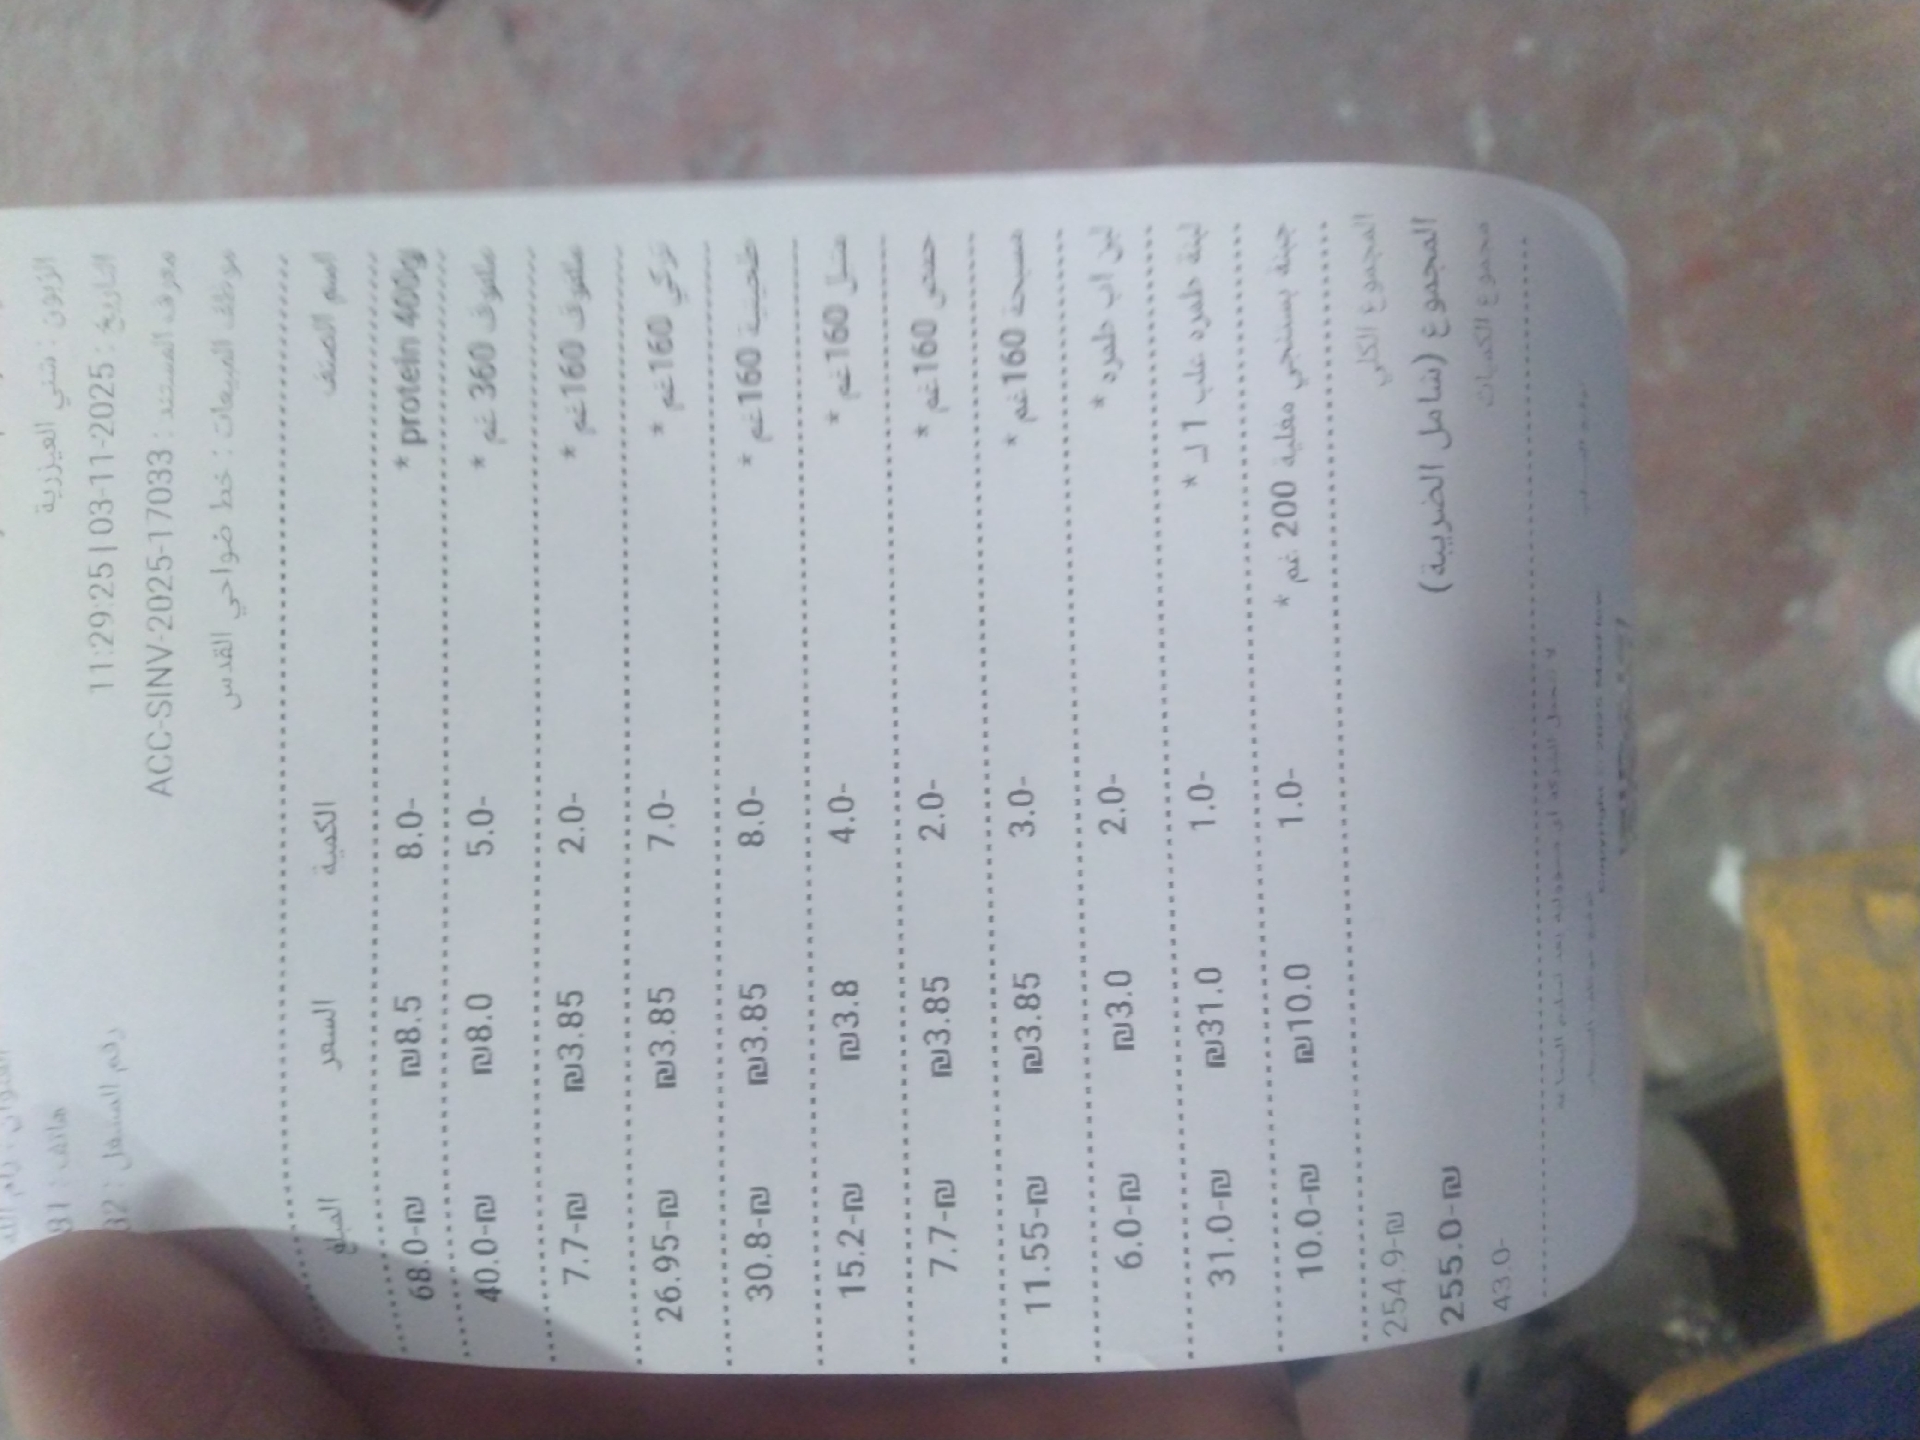 الزبون : شني العيزرية
هاتف :
التاريخ : 2025-11-03 | 11:29:25
رقم المشغل :
معرف المستند : ACC-SINV-2025-17033
موظف المبيعات : خط ضواحي القدس
اسم الصنف الكمية السعر المبلغ
protein 400g * 8.0- ₪8.5 68.0-₪
ملفوف 360 غم * 5.0- ₪8.0 40.0-₪
ملفوف 160غم * 2.0- ₪3.85 7.7-₪
تركي 160غم * 7.0- ₪3.85 26.95-₪
طحينية 160غم * 8.0- ₪3.85 30.8-₪
160غم * 4.0- ₪3.8 15.2-₪
حمص 160غم * 2.0- ₪3.85 7.7-₪
مسبحة 160غم * 3.0- ₪3.85 11.55-₪
لبن اب * 2.0- ₪3.0 6.0-₪
لبنة علب 1 ك * 1.0- ₪31.0 31.0-₪
جبنة بستنجي مغلية 200 غم * 1.0- ₪10.0 10.0-₪
المجموع الكلي 254.9-₪
المجموع (شامل الضريبة) 255.0-₪
مجموع الكميات 43.0-